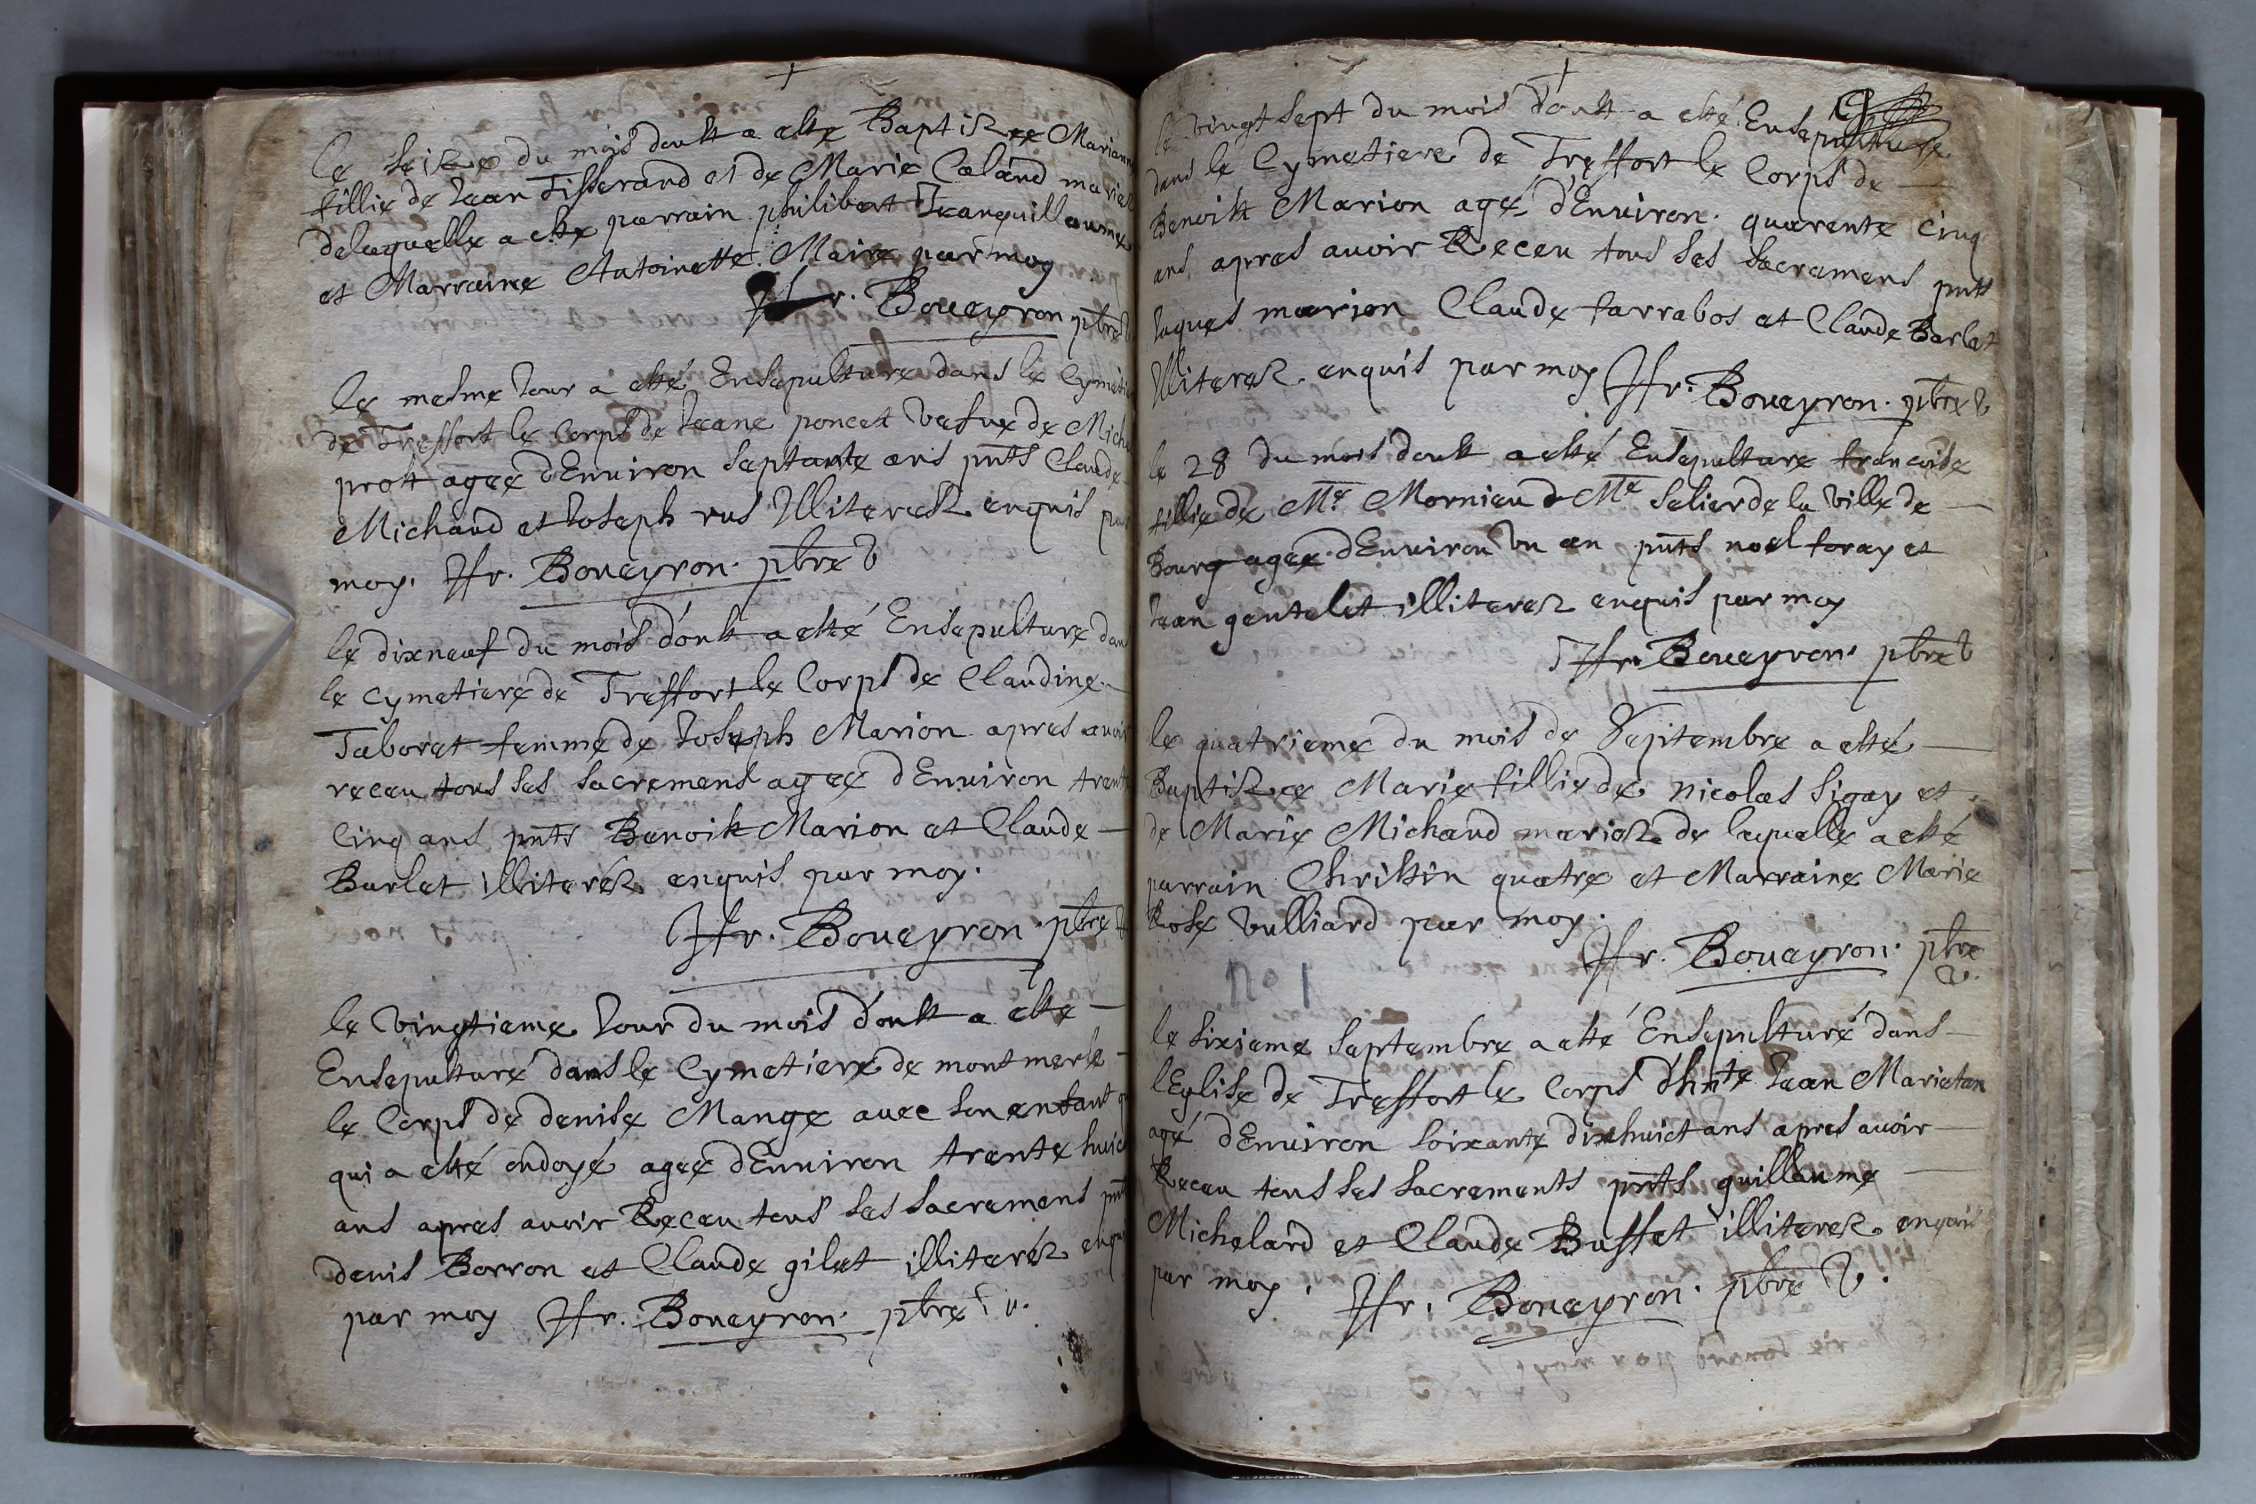 le seize du mois doult a esté Baptizee Marianne
fillie de Jean Tisserand et de Marie Caland mariez
delaquelle a esté parrain philibert Jeanguillaume
et Marraine Antoinette Maire par moy
Boueyron pbre V
le mesme Jour a esté Ensepulturé dans le Cymetie
de Treffort le Corps de Jeane poncet vefue de Miche
prost agée d'Enuiron septante ans pnts Claude
Michaud et Joseph rus Illiterez enquis par
moy. Jfr. Boueyron. pbre V
le dixneuf du mois d'oult a esté Ensepulturé dan
le cymetiere de Treffort le Corps de Claudine
Taboret femme de Joseph Marion apres auoir
receu tous ses sacremens agée d'Enuiron trente
Cinq ans pnts Benoist Marion et Claude
Barlet illiteréz enquis par moy.
Jfr. Boueyron pbre V
le vingtieme Jour du mois d'oult a esté
Ensepulturé dans le Cymetiere de montmerle
le Corps de denise Mange auec son enfant q
qui a esté ondoyé agée d'Enuiron trente huict
ans apres auoir Receu tous ses sacremens pnts
denis Borron et Claude gilet illiteréz enqu
par moy Jfr. Boueyron. pbre V.
9
le vingt sept du mois d'oult a esté Ensepulturé
dans le Cymetiere de Treffort le Corps de
Benoist Marion agé d'Enuiron quarente cinq
ans apres auoir Receu tous ses sacremens pnts
Jaques marion Claude farrabos et Claude Barlet
Illiterez enquis par moy Jfr. Boueyron. pbre V
le 28 du mois doult a esté Ensepulturé francoise
fillie de Mr Mornieu d Me selier de la ville de
Bourg agée d'Enuiron vn an pnts noel foray et
Jean gentelet illiterez enquis par moy
Jfr. Boueyron. pbre V
le quatrieme du mois de Septembre a esté
Baptizee Marie fillie de nicolas sigay et
de Marie Michaud mariez de laquelle a esté
parrain Christin quatre et Marraine Marie
Rose vulliard par moy.
Jfr. Boueyron. pbre V.
no 1
le sixieme septembre a esté Ensepulturé dans
l'Eglise de Treffort le Corps d'hnte Jean Marietan
agé d'Enuiron soixante dixhuict ans apres auoir
Receu tous ses sacrements pnts guillaume
Michelard et Claude Buffet illiterez enquis
par moy. Jfr. Boueyron. pbre V.